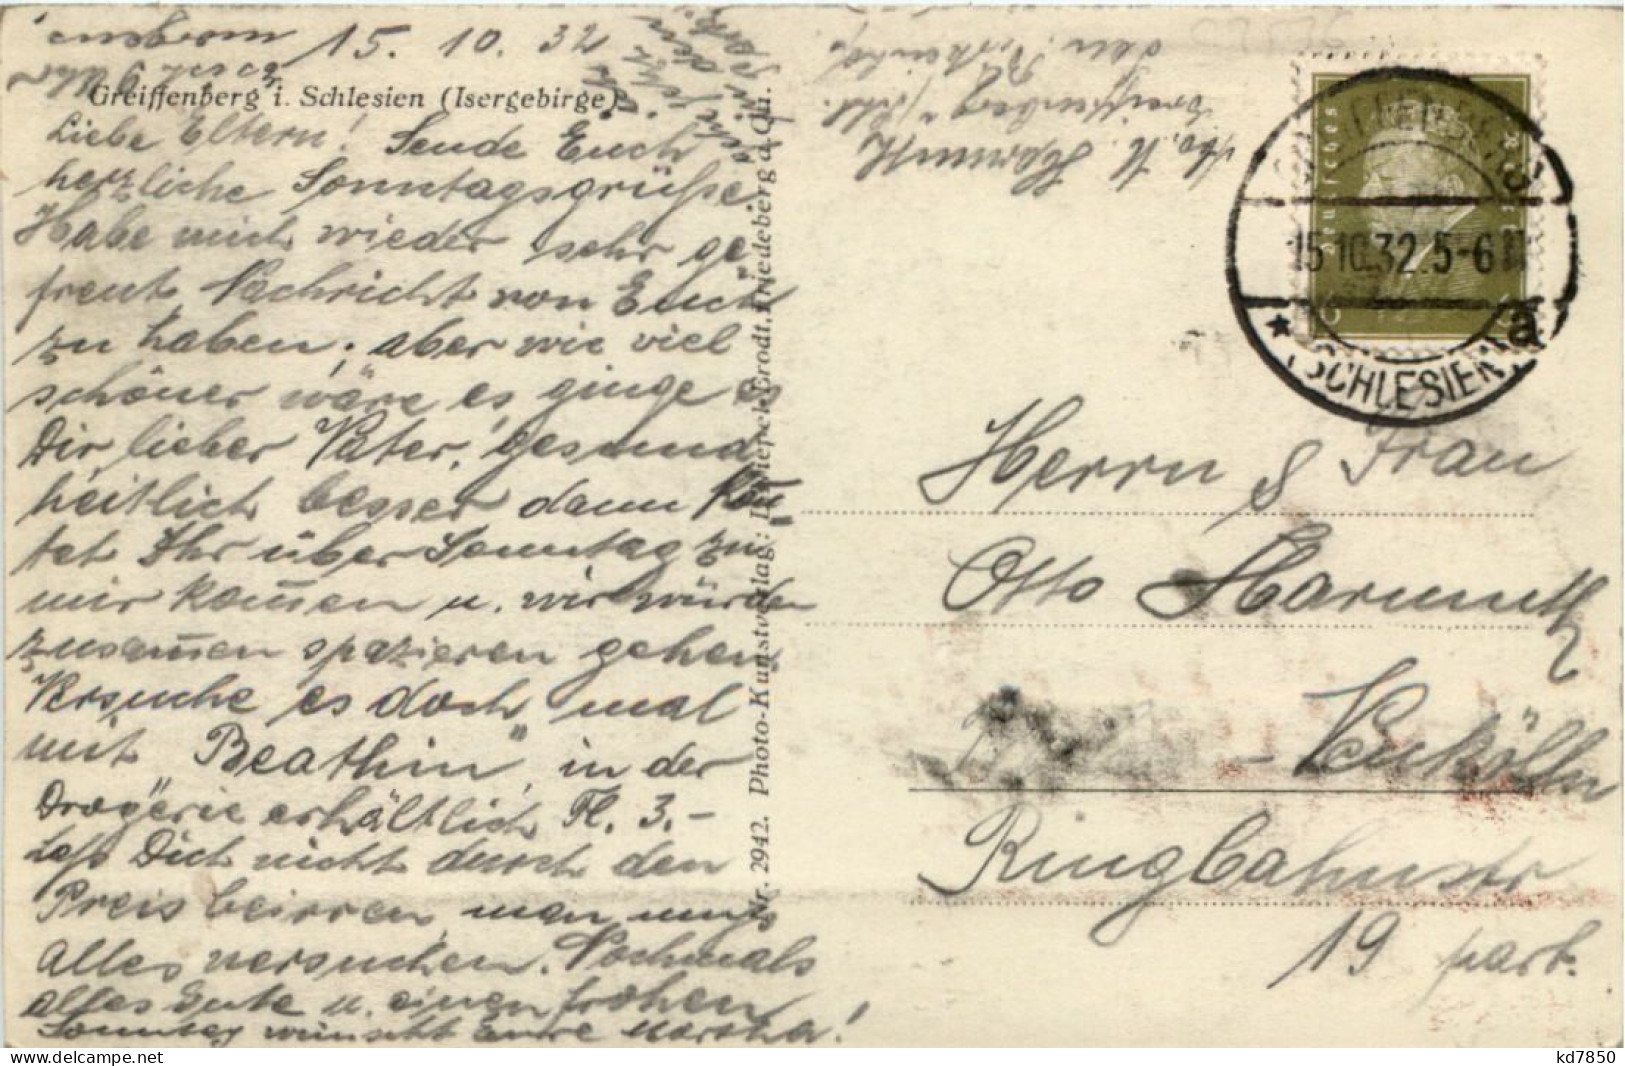 15. 10. 32
Greiffenberg i. Schlesien (Isergebirge)
Liebe Eltern! Sende Euch
herzliche Sonntagsgrüße
Habe mich wieder sehr ge
freut Nachricht von Euch
zu haben; aber wie viel
schöner wäre es ginge es
Dir lieber Vater, gesund
heitlich besser dann kön
tet Ihr über Sonntag zu
mir kom̅en u. wir würden
zusam̅en spazieren gehen.
Versuche es doch mal
mit „Beathin" in der
Drogerie erhältlich Fl. 3.-
Laß Dich nicht durch den
Preis beirren, man muß
alles versuchen. Nochmals
alles Gute u. einen frohen
Sonntag wünscht Eure Martha!
Nr. 2942. Photo-Kunstverlag: Friedeberg a. Qu.
Abs. M. Harmuth
Greiffenberg /Schl.
Deutsches Reich
15.10.32.5-6
a
* (SCHLESIEN)
Herrn & Frau
Otto Harmuth
- Neukölln
Ringbahnstr
19 part.
kd7850